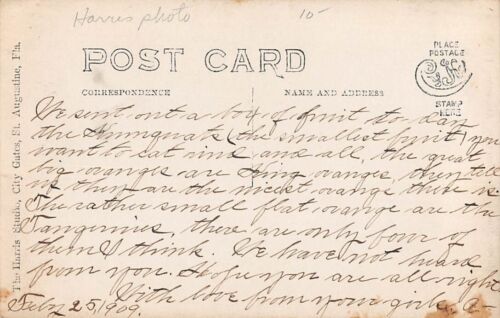 Harris photo
10-
POST CARD
PLACE
POSTAGE
STAMP
HERE
CORRESPONDENCE
NAME AND ADDRESS
The Harris Studio, City Gates, St. Augustine, Fla.
We sent out a box of fruit to-day
the Kumquats (the smallest fruit) you
want to eat rind and all, the great
big oranges are King oranges, they tell
us they are the nicest orange there is
The rather small flat orange are the
Tangerines, there are only four of
them I think. We have not heard
from you. Hope you are all right
With love from your girls,
Feby 25, 1909.